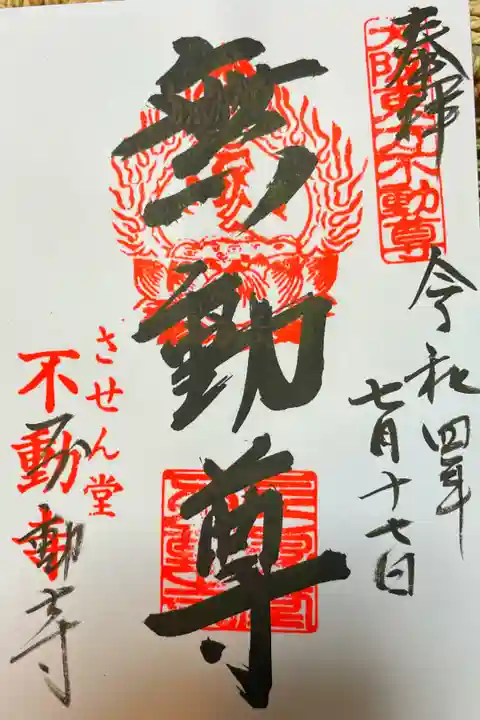 奉拝
大阪東大不動尊
令和四年
七月十七日
無動尊
させん堂
不動寺
不動寺